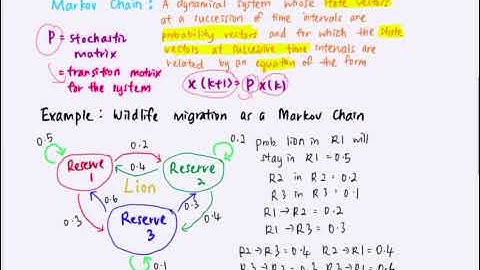 Markov Chain: A dynamical system whose state vectors
at a succession of time intervals are
probability vectors and for which the state
vectors at successive time intervals are
related by an equation of the form
P = stochastic
matrix
= transition matrix
for the system
x(k+1) = P x(k)
Example: Wildlife migration as a Markov Chain
0.5
0.2
0.2
Reserve
1
0.4
Reserve
2
Lion
0.6
0.3
0.3
0.4
Reserve
3
0.1
prob. lion in R1 will
stay in R1 = 0.5
R2 in R2 = 0.2
R3 in R3 = 0.1
R1 → R2 = 0.2
R1 → R3 = 0.3
R2 → R3 = 0.4 R2 → R1 = 0.4
R3 → R2 = 0.3 R3 → R1 = 0.6